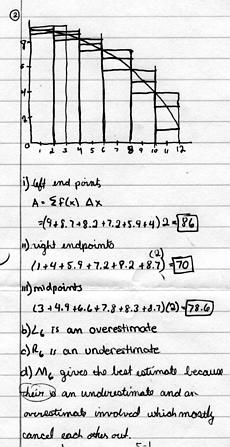 ②
8
6
4
2
0
1 2 3 4 5 6 7 8 9 10 11 12
i) left end points
A = Σf(x) Δx
=(9+8.7+8.2+7.2+5.9+4)2=86
ii) right endpoints
(1+4+5.9+7.2+8.2+8.7)(2)=70
iii) midpoints
(3+4.9+6.6+7.8+8.3+8.7)(2)=78.6
b) L6 is an overestimate
c) R6 is an underestimate
d) M6 gives the best estimate because
their is an underestimate and an
overestimate involved which mostly
cancel each other out.